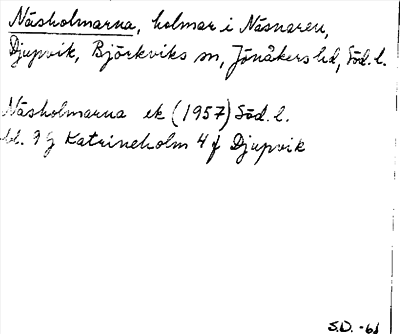 Näsholmarna, holmar i Näsnaren,
Djupvik, Björkviks sn, Jönåkers hd, Söd. l.
Näsholmarna ek (1957) Söd. l.
bl. 9 G Katrineholm 4 f Djupvik
S.D. -61